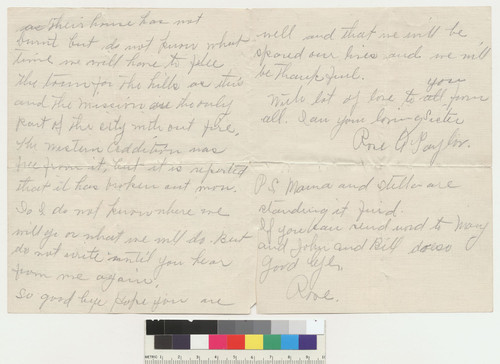 as their house has not
burnt but do not know what
time we will have to flee
the town for the hills as this
and the Mission are the only
part of the city with out fire,
The Western Addition was
free from it, but it is reported
that it has broken out now.
So I do not know where we
will go or what we will do. But
do not write until you hear
from me again.
So good bye hope you are
well and that we will be
spared our lives and we will
be thankful.
With lot of love to you all from
all. I am your loving Sister
Rose A Paylor.
P.S. Mama and Stella are
standing it fine.
If you can send word to Mary
and John and Bill do so
Good bye,
Rose.